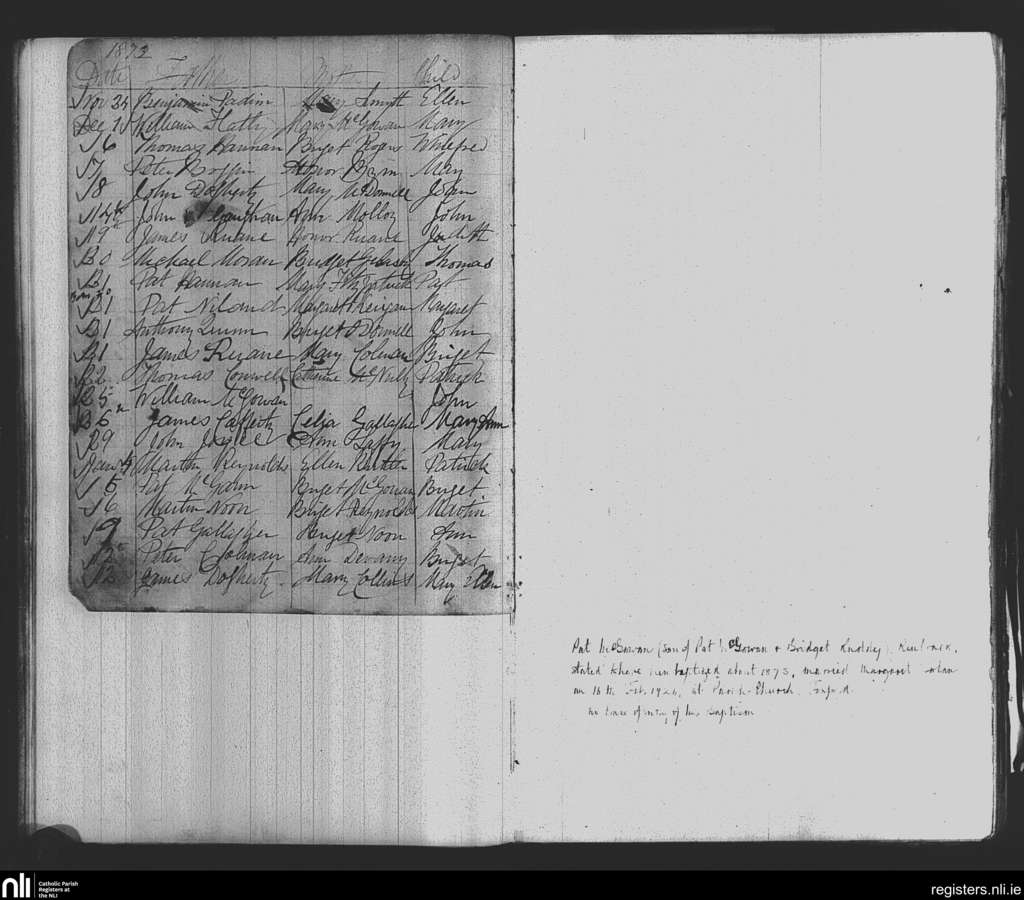 1873
Date Father Mot Child
Nov 24 Benjamin Padin Mary Smyth Ellen
Dec 1 William Flatly Mary McGowan Mary
16 Thomas Hannan Briget Rogers Winefred
17 Peter Honor Byrn Mary
18 John Dogherty Mary McDonnell John
John Ann Molloy John
19 James Ruane Honor Ruane Judith
20 Michael Moran Bridget Thomas
21 Pat Hannan Mary Fitzpatrick Pat
21 Pat Niland Margaret Keigan Margaret
21 Anthony Quinn Briget O Donnell John
21 James Ruane Mary Colman Briget
22 Thomas Connell Catherine McNulty Patrick
25 William McGowan John
26 James Cafferty Celia Gallagher Mary Ann
29 John Joyce Ann Laffy Mary
Jany Martin Reynolds Ellen Patrick
15 Pat McGann Briget McGowan Briget
16 Martin Noon Briget Reynolds Martin
19 Pat Gallagher Briget Noon Ann
12 Peter Colman Ann Devany Briget
12 James Dogherty Mary Collins Mary Ellen
Pat McGowan (son of Pat McGowan & Bridget
stated to have been baptized about 1873, married Margaret
on 16th Feb. 1924, at Parish Church
no trace of entry of his Baptism
nli
Catholic Parish
Registers at
the NLI
registers.nli.ie